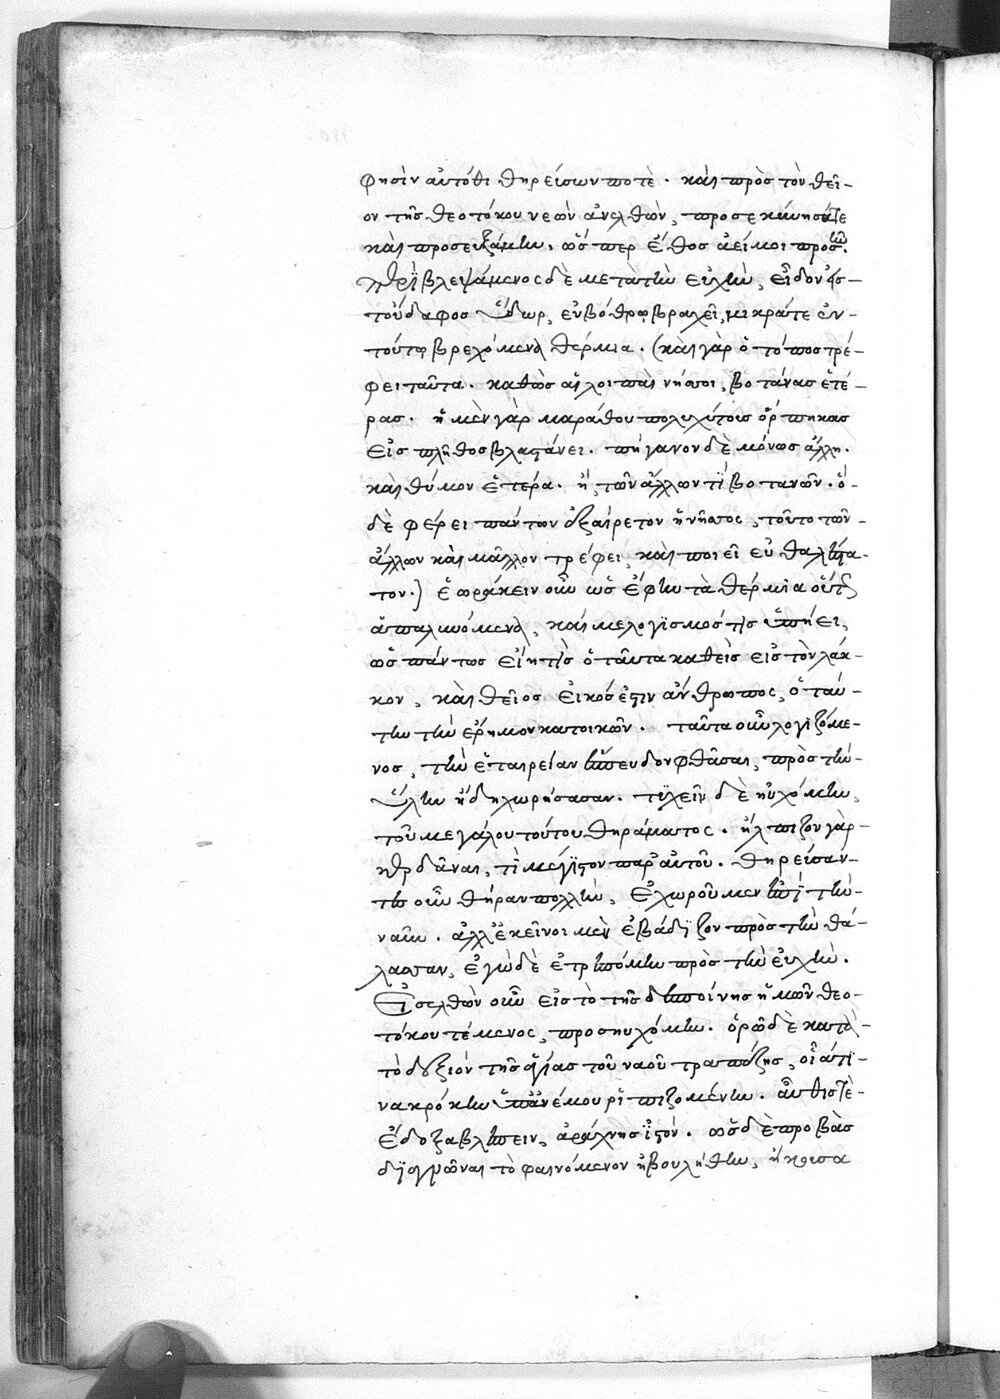 φησὶν αὐτόθι θηρεύσων ποτέ. καὶ πρὸς τὸν θεῖ-
ον τῆς θεοτόκου νεὼν ἀνελθὼν, προσεκύνησάτε
καὶ προσευξάμην, ὥσπερ ἔθος ἀεί μοι πρὸς.
περιβλεψάμενος δὲ μετὰ τὴν εὐχὴν, εἶδον εἰς
τοὔδαφος ὕδωρ, ἐν βόθρῳ βραχεῖ, μικρᾶτε ἐν
τούτῳ βρεχόμενα θέρμια. (καὶ γὰρ ὁ τόπος τρέ-
φει ταῦτα. καθὼς αἱ λοιπαὶ νῆσοι, βοτάνας ἑτέ-
ρας. ἡ μὲν γὰρ μαράθου πολυχύτοις ὅρπηκας
εἰς πλῆθος βλαστάνει. πήγανον δὲ μόνως ἄλλη.
καὶ θύμον ἑτέρα. ἤ τῶν ἄλλων τὶ βοτανῶν. ὁ
δὲ φέρει πάντων ἐξαίρετον ἡ νῆσος, τοῦτο τῶν
ἄλλων καὶ μᾶλλον τρέφει, καὶ ποιεῖ εὐθαλέστα-
τον.) ἑωράκειν οὖν ὡς ἔφην τὰ θέρμια οὕτως
ἁπαλυνόμενα, καί με λογισμός τις ὑπῄει,
ὡς πάντως εἴητις ὁ ταῦτα καθεὶς εἰς τὸν λάκ-
κον, καὶ θεῖος εἰκός ἐστιν ἄνθρωπος, ὁ ταύ-
την τὴν ἔρημον κατοικῶν. ταῦτα οὖν λογιζόμε-
νος, τὴν ἑταιρείαν ἔσπευδον φθᾶσαι, πρὸς τὴν
ὕλην ἤδη χωρήσασαν. τυχεῖν δὲ ηὐχόμην,
τοῦ μεγάλου τούτου θηράματος. ἤλπιζον γὰρ
κερδᾶναι, τὶ μέγιστον παρ' αὐτοῦ. θηρεύσαν-
τες οὖν θήραν πολλὴν, ἐχωροῦμεν ἐπὶ τὴν
ναῦν. ἀλλ' ἐκεῖνοι μὲν ἐβάδιζον πρὸς τὴν θά-
λασσαν, ἐγὼ δὲ ἐτρεπόμην πρὸς τὴν εὐχὴν.
Εἰσελθὼν οὖν εἰς τὸ τῆς δεσποίνης ἡμῶν θεο-
τόκου τέμενος, προσηυχόμην. ὁρῶ δὲ κατὰ
τὸ δεξιὸν τῆς ἁγίας τοῦ ναοῦ τραπέζης, οἷά τι-
να κρόκην ὑπ' ἀνέμου ῥιπιζομένην. αὖθίς τε
ἔδοξα βλέπειν, ἀράχνης ἱστόν. ὡς δὲ προβὰς
διαγνῶναι τὸ φαινόμενον ἠβουλήθην, ἤκουσα